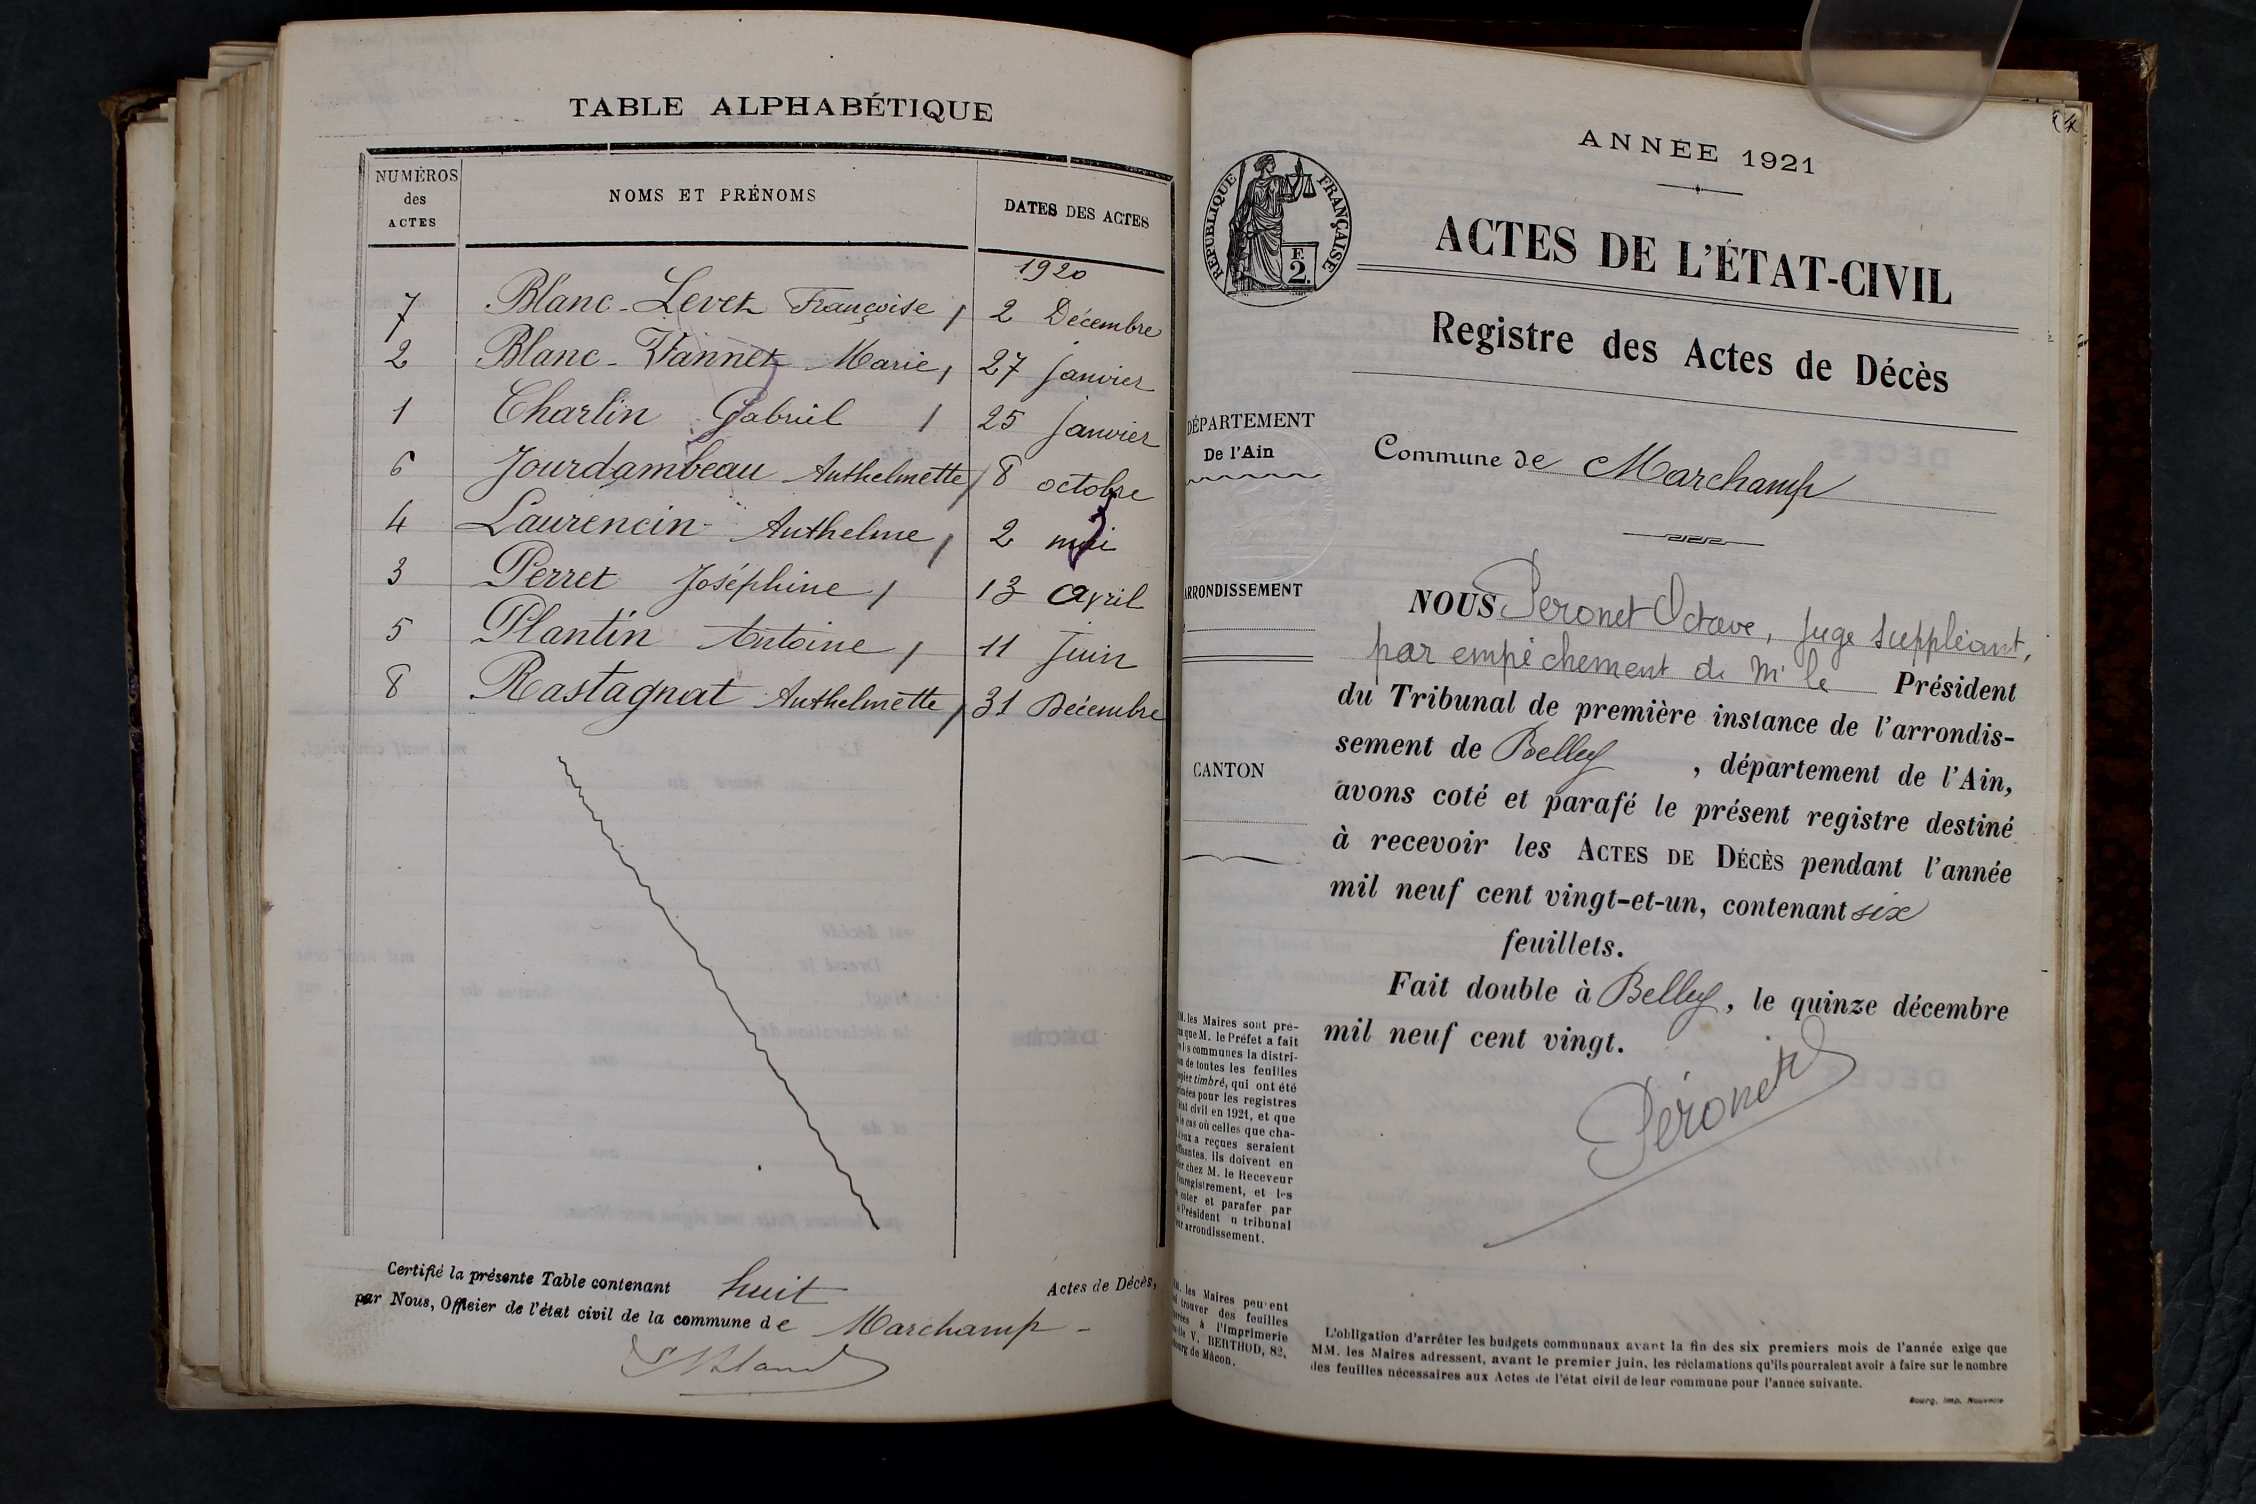 TABLE ALPHABÉTIQUE
NUMÉROS
des
ACTES
NOMS ET PRÉNOMS
DATES DES ACTES
1920
7 Blanc-Levet Françoise, 2 Décembre
2 Blanc-Vannet Marie, 27 janvier
1 Charlin Gabriel 25 janvier
6 Jourdambeau Anthelmette, 8 octobre
4 Laurencin Anthelme, 2 mai
3 Perret Joséphine, 13 avril
5 Plantin Antoine, 11 Juin
8 Rastagnat Anthelmette, 31 Décembre
Certifié la présente Table contenant huit Actes de Décès,
par Nous, Officier de l'état civil de la commune de Marchamp -
ANNÉE 1921
RÉPUBLIQUE FRANÇAISE
F
2
ACTES DE L'ÉTAT-CIVIL
Registre des Actes de Décès
DÉPARTEMENT
De l'Ain
Commune de Marchamp
ARRONDISSEMENT
CANTON
NOUS Peronet Octave, juge suppléant,
par empêchement de Mr le Président
du Tribunal de première instance de l'arrondis-
sement de Belley, département de l'Ain,
avons coté et parafé le présent registre destiné
à recevoir les ACTES DE DÉCÈS pendant l'année
mil neuf cent vingt-et-un, contenant six
feuillets.
Fait double à Belley, le quinze décembre
mil neuf cent vingt.
Péronet
les Maires sont pré-
que M. le Préfet a fait
communes la distri-
de toutes les feuilles
timbré, qui ont été
pour les registres
civil en 1921, et que
cas où celles que cha-
a reçues seraient
ils doivent en
chez M. le Receveur
et les
coter et parafer par
Président tribunal
arrondissement.
les Maires peuvent
trouver des feuilles
à l'Imprimerie
V. BERTHOD, 82,
de Mâcon.
L'obligation d'arrêter les budgets communaux avant la fin des six premiers mois de l'année exige que
MM. les Maires adressent, avant le premier juin, les réclamations qu'ils pourraient avoir à faire sur le nombre
des feuilles nécessaires aux Actes de l'état civil de leur commune pour l'année suivante.
Bourg, Imp. Nouvelle